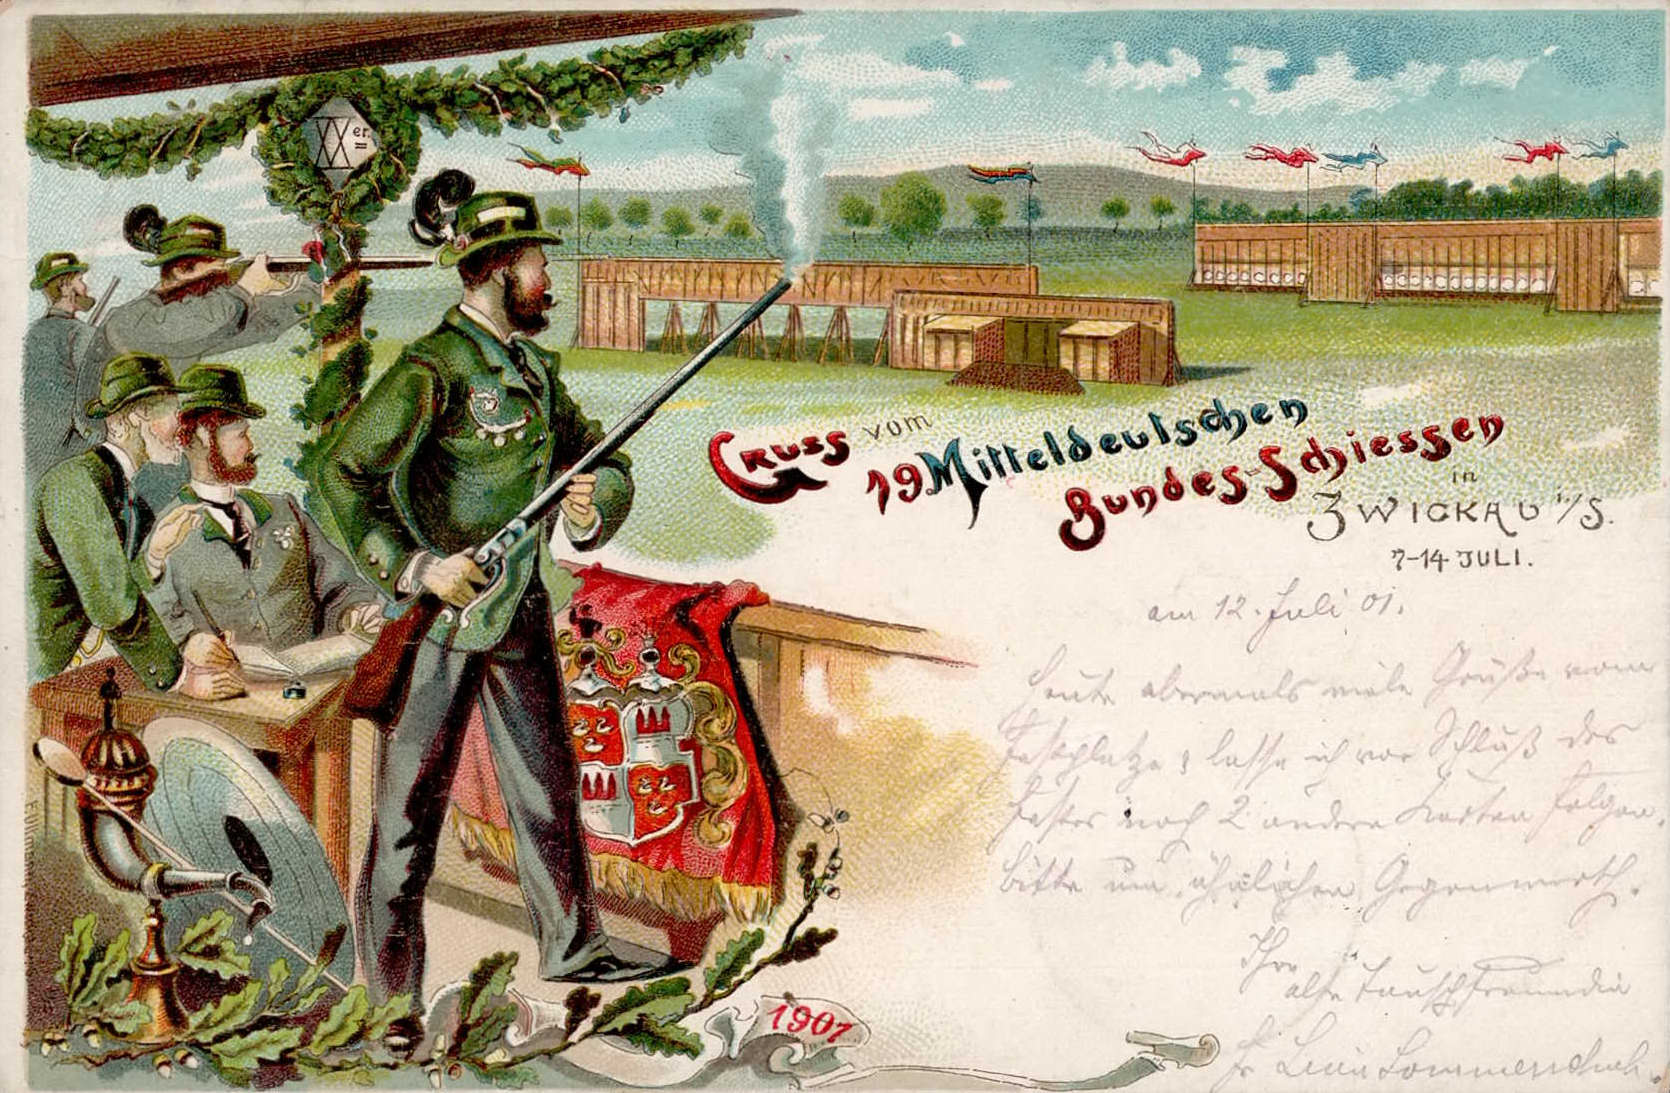 XXer.
Gruss vom
19 Mitteldeutschen
Bundes-Schiessen
in
Zwickau i/S.
7-14 JULI.
am 12. Juli 01.
Heute abermals viele Grüße vom
Festplatze & lasse ich vor Schluß des
Festes noch 2 andere Karten folgen.
Bitte um ähnlichen Gegenwerth.
Ihre
alte Tauschfreundin
1901